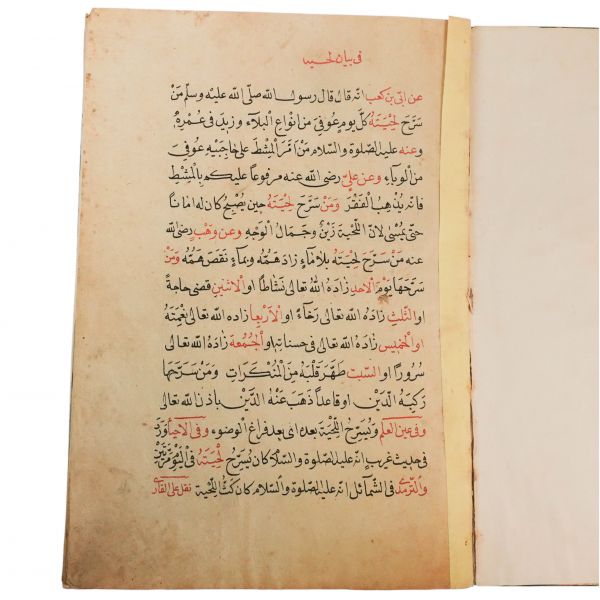 فى بيان لحيه
عن ابى بن كعب انه قال قال رسول الله صلى الله عليه وسلم من
سَرَّحَ لِحْيَتَهُ كل يوم عوفى من انواع البلاء وزيد فى عمره
وعنه عليه الصلوة والسلام من امَرَّ المشط على حاجبيه عوفى
من الوباء وعن على رضى الله عنه مرفوعاً عليكم بالمشط
فانه يذهب الفقر ومن سرح لحيته حين يصبح كان له امانا
حتى يمسى لان اللحية زين وجمال الوجه وعن وهب رضى الله
عنه من سرح لحيته بلا ماء زاد همه وبماء نقص همه ومن
سرحها يوم الاحد زاده الله تعالى نشاطا او الاثنين قضى حاجة
او الثلث زاده الله تعالى رخاء او الاربعا زاده الله تعالى نغمته
او الخميس زاده الله تعالى فى حسناته او الجمعة زاده الله تعالى
سرورا او السبت طهر قلبه من المنكرات ومن سرحها
ركبه الدين او قاعدا ذهب عنه الدين باذن الله تعالى
وفى عين العلم ويسرح اللحية بعده اى بعد فراغ الوضوء وفى الاحيا ورد
فى حديث غريب انه عليه الصلوة والسلا كان يسرح لحيته فى اليوم مرتين
والترمذى فى الشمائل انه عليه الصلوة والسلام كان كث اللحية نقل على القارى